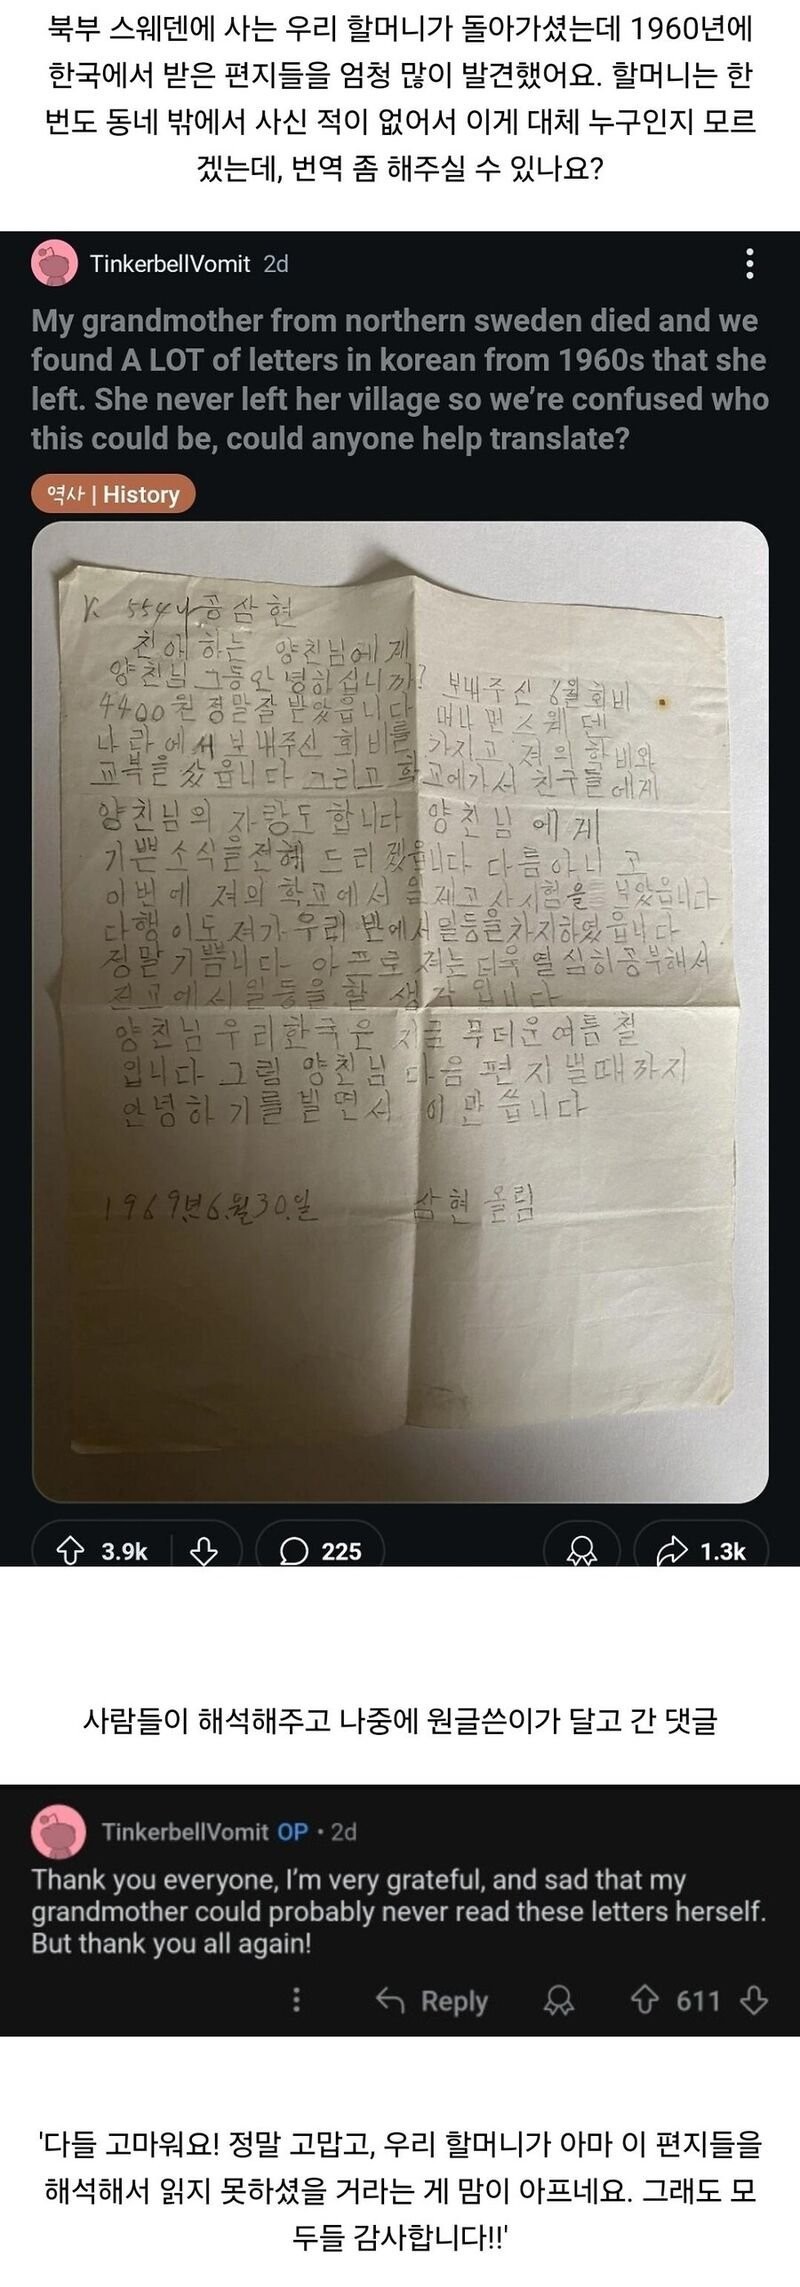 북부 스웨덴에 사는 우리 할머니가 돌아가셨는데 1960년에
한국에서 받은 편지들을 엄청 많이 발견했어요. 할머니는 한
번도 동네 밖에서 사신 적이 없어서 이게 대체 누구인지 모르
겠는데, 번역 좀 해주실 수 있나요?
TinkerbellVomit 2d
My grandmother from northern sweden died and we
found A LOT of letters in korean from 1960s that she
left. She never left her village so we're confused who
this could be, could anyone help translate?
역사 | History
K 554 공삼현
친애하는 양친님에게
양친님 그동안 녕히십니까? 보내주신 6월 회비
4400원 정말잘 받았읍니다 머나먼스웨덴
나라에서 보내주신 회비를 가지고 져의 학비와
교북을 샀읍니다 그리고 학교에가서 친구들에게
양친님의 자랑도 합니다 양친님에게
기쁜소식을전헤 드리겠읍니다 다름아니고
이번에 져의 학교에서 일제고사시험을 보았읍니다
다행이도 져가 우리반에서일등을차지하였읍니다
정말기쁨니다 아프로 져는 더욱열심히공부해서
전교에서일등을할 생각입니다
양친님우리한국은 지금 무더운여름철
입니다 그럼 양친님 다음편지쓸때까지
안녕하기를빌면서 이만씁니다
1969년6월30일 삼현올림
3.9k 225 1.3k
사람들이 해석해주고 나중에 원글쓴이가 달고 간 댓글
TinkerbellVomit OP • 2d
Thank you everyone, I'm very grateful, and sad that my
grandmother could probably never read these letters herself.
But thank you all again!
Reply 611
'다들 고마워요! 정말 고맙고, 우리 할머니가 아마 이 편지들을
해석해서 읽지 못하셨을 거라는 게 맘이 아프네요. 그래도 모
두들 감사합니다!!'